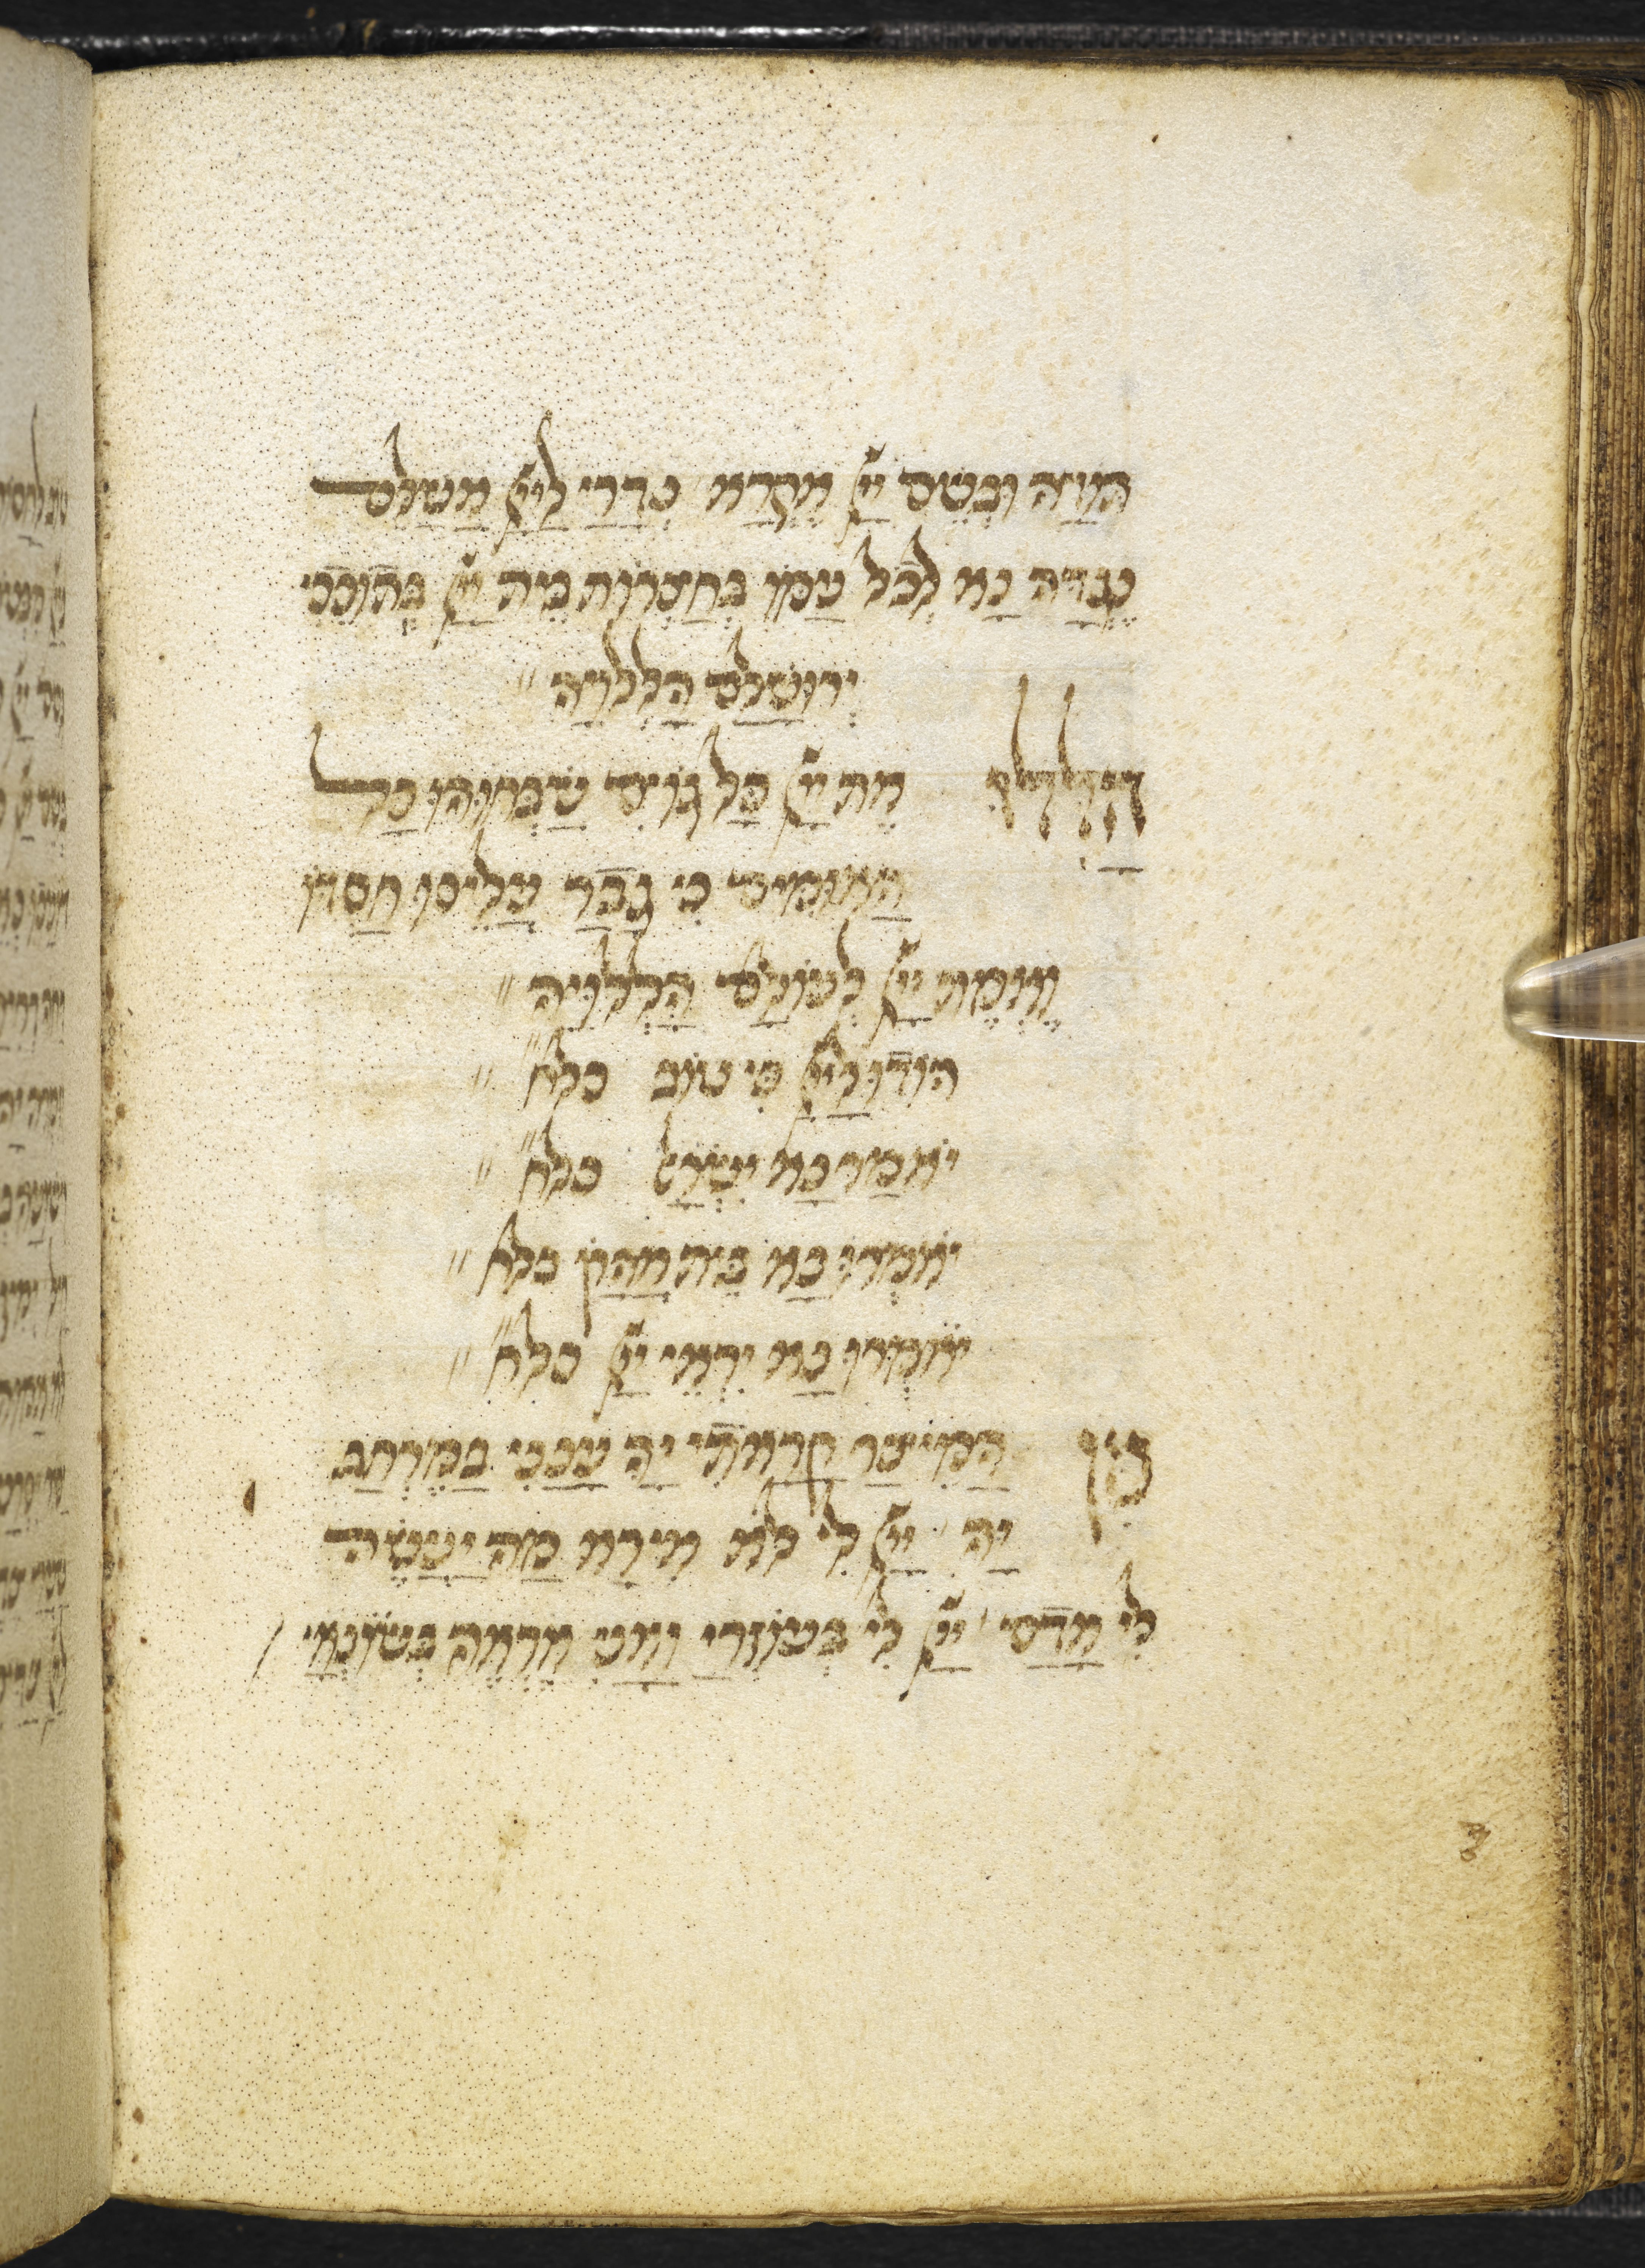 תּוֹדָה וּבְשֵׁם יְיָ אֶקְרָא נְדָרַי לַייָ אֲשַׁלֵּם
נֶגְדָה נָא לְכָל עַמּוֹ בְּחַצְרוֹת בֵּית יְיָ בְּתוֹכֵכִי
יְרוּשָׁלַם הַלְלוּיָהּ
הַלְלוּ אֶת יְיָ כָּל גּוֹיִם שַׁבְּחוּהוּ כָּל
הָאֻמִּים כִּי גָבַר עָלֵינוּ חַסְדּוֹ
וֶאֱמֶת יְיָ לְעוֹלָם הַלְלוּיָהּ
הוֹדוּ לַייָ כִּי טוֹב כלח
יֹאמַר נָא יִשְׂרָאֵל כלח
יֹאמְרוּ נָא בֵית אַהֲרֹן כלח
יֹאמְרוּ נָא יִרְאֵי יְיָ כלח
מִן הַמֵּיצַר קָרָאתִי יָּהּ עָנָנִי בַמֶּרְחָב
יָהּ יְיָ לִי לֹא אִירָא מַה יַּעֲשֶׂה
לִי אָדָם יְיָ לִי בְּעוֹזְרָי וַאֲנִי אֶרְאֶה בְשׂוֹנְאָי